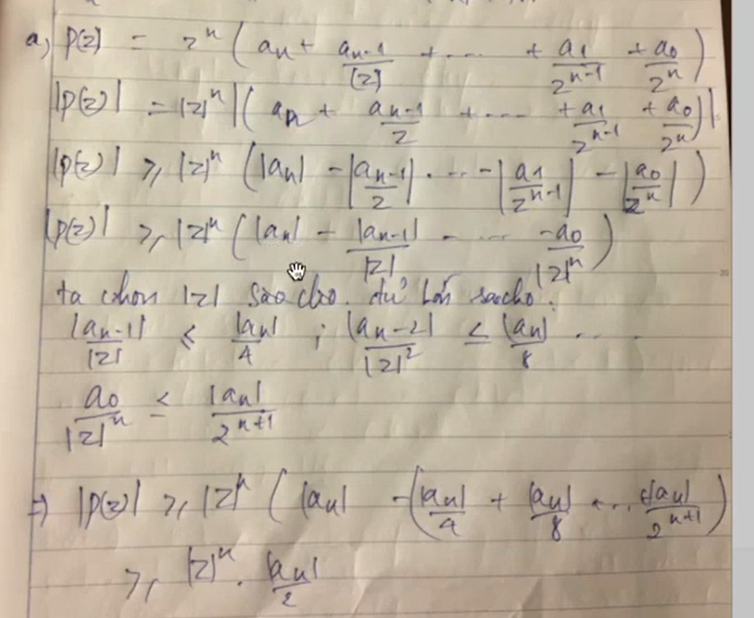 a, P(z) = z^n ( a_n + \frac{a_{n-1}}{(z)} + ... + \frac{a_1}{z^{n-1}} + \frac{a_0}{z^n} )
|p(z)| = |z|^n |( a_n + \frac{a_{n-1}}{z} + ... + \frac{a_1}{z^{n-1}} + \frac{a_0}{z^n} )|
|p(z)| ≥ |z|^n ( |a_n| - |\frac{a_{n-1}}{z}| ... - |\frac{a_1}{z^{n-1}}| - |\frac{a_0}{z^n}| )
|p(z)| ≥ |z|^n ( |a_n| - \frac{|a_{n-1}|}{|z|} - ... \frac{-a_0}{|z|^n} )
ta chọn |z| sao cho. đủ lớn sao cho:
\frac{|a_{n-1}|}{|z|} ≤ \frac{|a_n|}{4} ; \frac{|a_{n-2}|}{|z|^2} ≤ \frac{|a_n|}{8} ...
\frac{a_0}{|z|^n} ≤ \frac{|a_n|}{2^{n+1}}
⇒ |p(z)| ≥ |z|^n ( |a_n| - ( \frac{|a_n|}{4} + \frac{|a_n|}{8} + ... + \frac{|a_n|}{2^{n+1}} )
≥ |z|^n . \frac{|a_n|}{2}